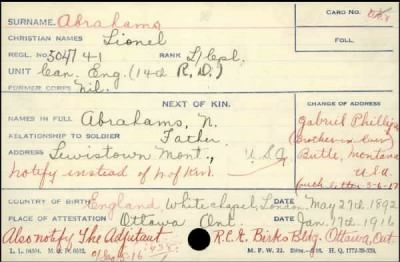 SURNAME. Abrahams
CARD NO.
CHRISTIAN NAMES Lionel
FOLL.
REGL. NO. 504741 RANK L/Cpl.
UNIT Can. Eng. (14th R.D.)
FORMER CORPS Nil.
NEXT OF KIN.
CHANGE OF ADDRESS
NAMES IN FULL Abrahams, N.
Gabriel Phillips
RELATIONSHIP TO SOLDIER Father
(Brother in law)
ADDRESS Lewistown Mont., U.S.A
Butte, Montana
notify instead of N of Kin.
U.S.A.
COUNTRY OF BIRTH England, Whitechapel, London DATE May 27th 1892
PLACE OF ATTESTATION Ottawa Ont. DATE Jan. 17th 1916
Also notify The Adjutant R.C.E. Birks Bldg. Ottawa, Ont
M. F. W. 22.